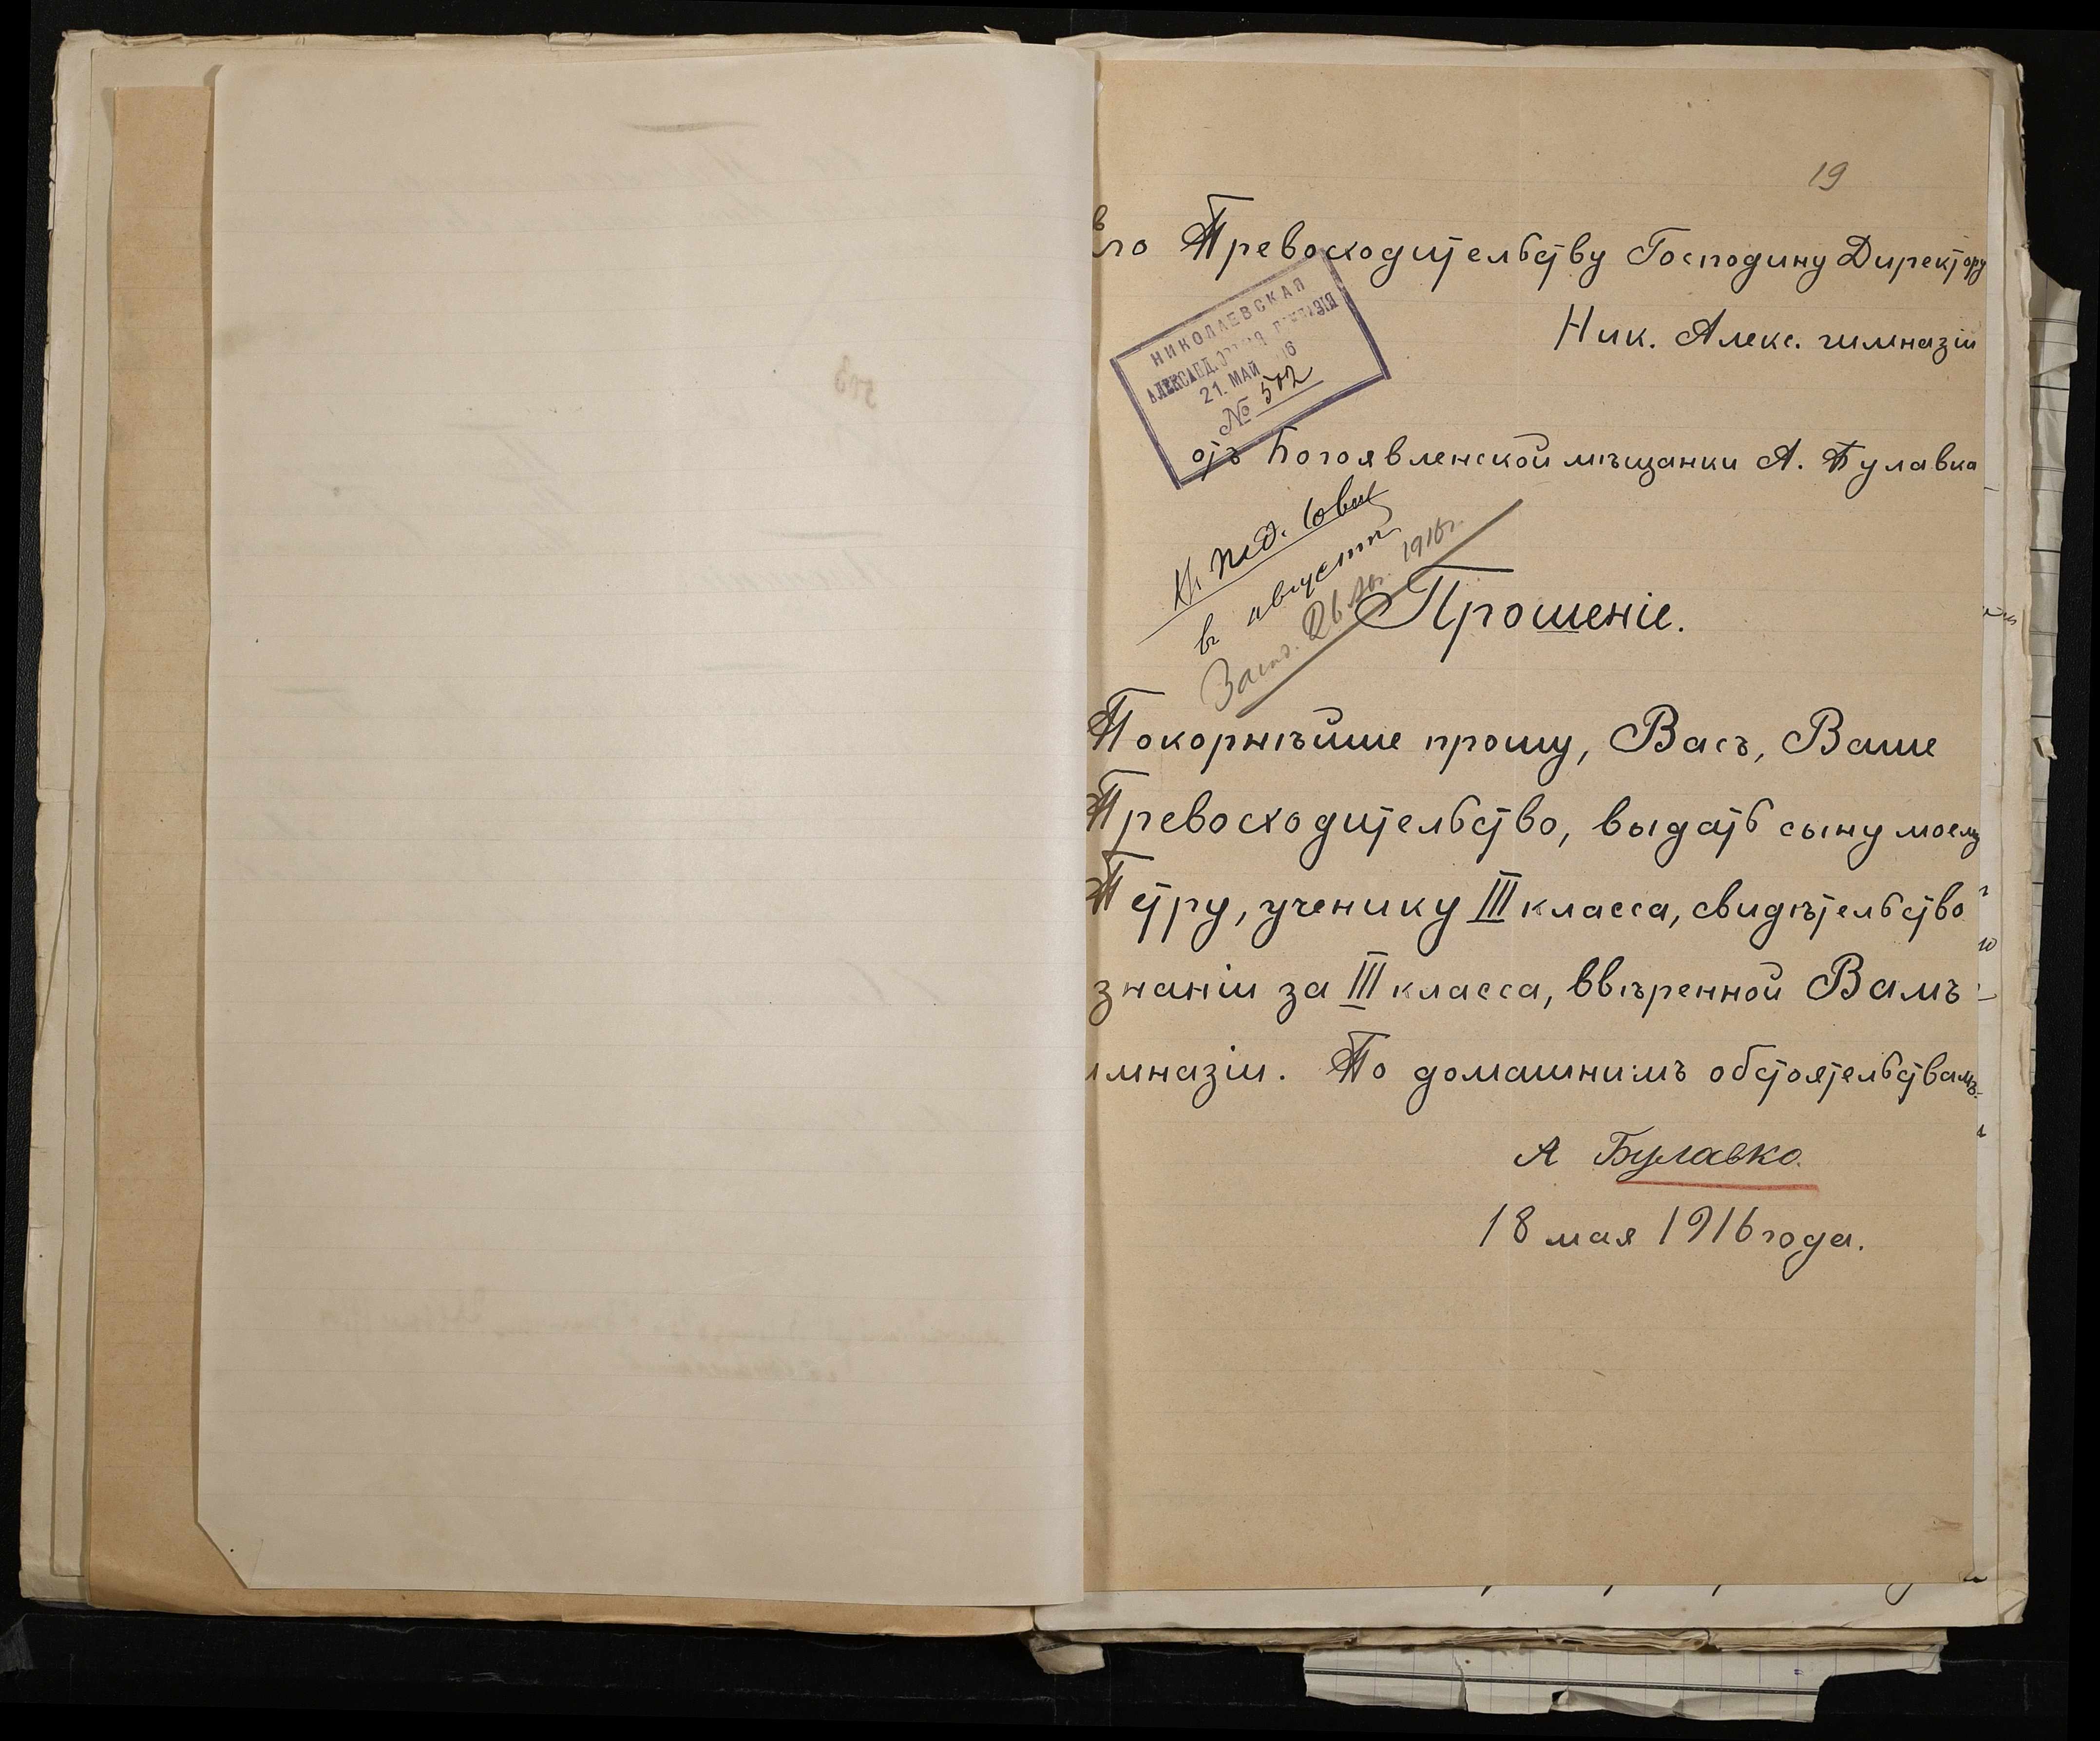 19
Его Превосходительству Господину Директору
Ник. Алекс. гимназіи
НИКОЛАЕВСКАЯ
АЛЕКСАНДРОВСКАЯ ГИМНАЗІЯ
21. МАЙ 16
№ 502
отъ Богоявленской мѣщанки А. Булавка
Къ пед. совѣт
въ августѣ
Засѣд. 26 1916г.
Прошеніе.
Покорнѣйше прошу, Васъ, Ваше
Превосходительство, выдать сыну моему
Петру, ученику III класса, свидѣтельство
знаніи за III класса, ввѣренной Вамъ
имназіи. По домашнимъ обстоятельствамъ.
А Булавко.
18 мая 1916 года.